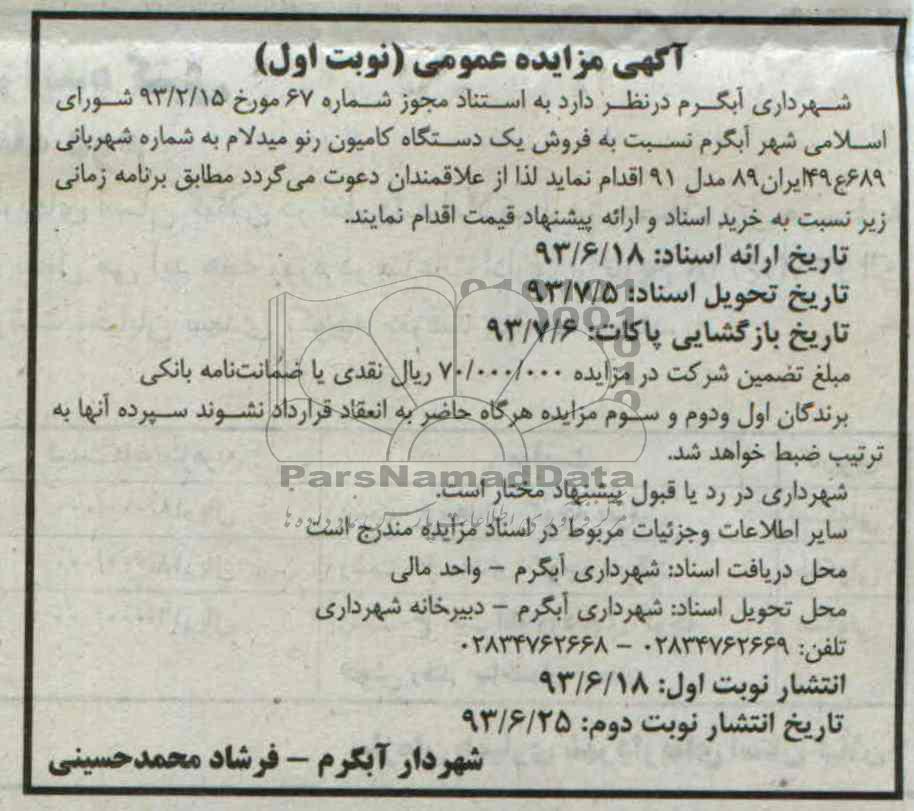 آگهی مزایده عمومی (نوبت اول)
شهرداری آبگرم درنظر دارد به استناد مجوز شماره ۶۷ مورخ ۹۳/۲/۱۵ شورای
اسلامی شهر آبگرم نسبت به فروش یک دستگاه کامیون رنو میدلام به شماره شهربانی
۶۸۹ع۴۹ایران۸۹ مدل ۹۱ اقدام نماید لذا از علاقمندان دعوت می‌گردد مطابق برنامه زمانی
زیر نسبت به خرید اسناد و ارائه پیشنهاد قیمت اقدام نمایند.
تاریخ ارائه اسناد: ۹۳/۶/۱۸
تاریخ تحویل اسناد: ۹۳/۷/۵
تاریخ بازگشایی پاکات: ۹۳/۷/۶
مبلغ تضمین شرکت در مزایده ۷۰/۰۰۰/۰۰۰ ریال نقدی یا ضمانت‌نامه بانکی
برندگان اول ودوم و سوم مزایده هرگاه حاضر به انعقاد قرارداد نشوند سپرده آنها به
ترتیب ضبط خواهد شد.
ParsNamadData
شهرداری در رد یا قبول پیشنهاد مختار است.
سایر اطلاعات وجزئیات مربوط در اسناد مزایده مندرج است
محل دریافت اسناد: شهرداری آبگرم – واحد مالی
محل تحویل اسناد: شهرداری آبگرم – دبیرخانه شهرداری
تلفن: ۰۲۸۳۴۷۶۲۶۶۹ – ۰۲۸۳۴۷۶۲۶۶۸
انتشار نوبت اول: ۹۳/۶/۱۸
تاریخ انتشار نوبت دوم: ۹۳/۶/۲۵
شهردار آبگرم – فرشاد محمدحسینی